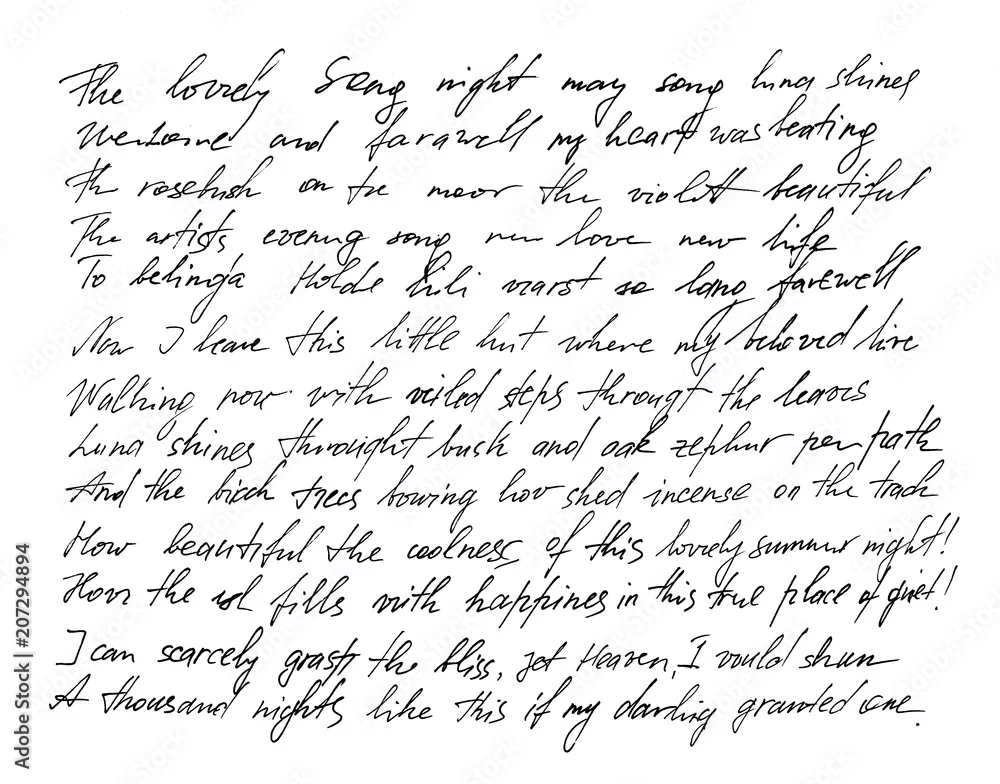 The lovely Song night may song luna shines
Welcome and farawell my heart was beating
Th rosebush on te moor the violett beautiful
The artists evening song new love new life
To belinda Holde Lili warst so long farewell
Now I leave this little hut where my beloved live
Walking now with veiled steps througt the leaves
Luna shines throught bush and oak zephur per path
And the birch trees bowing how shed incense on the track
How beautiful the coolness of this lovely summer night!
How the fills with happines in this true place of quiet!
I can scarcely grasp the bliss, yet Heaven, I would shun
A thousand nights like this if my darling granted one.
Adobe Stock | #207294894